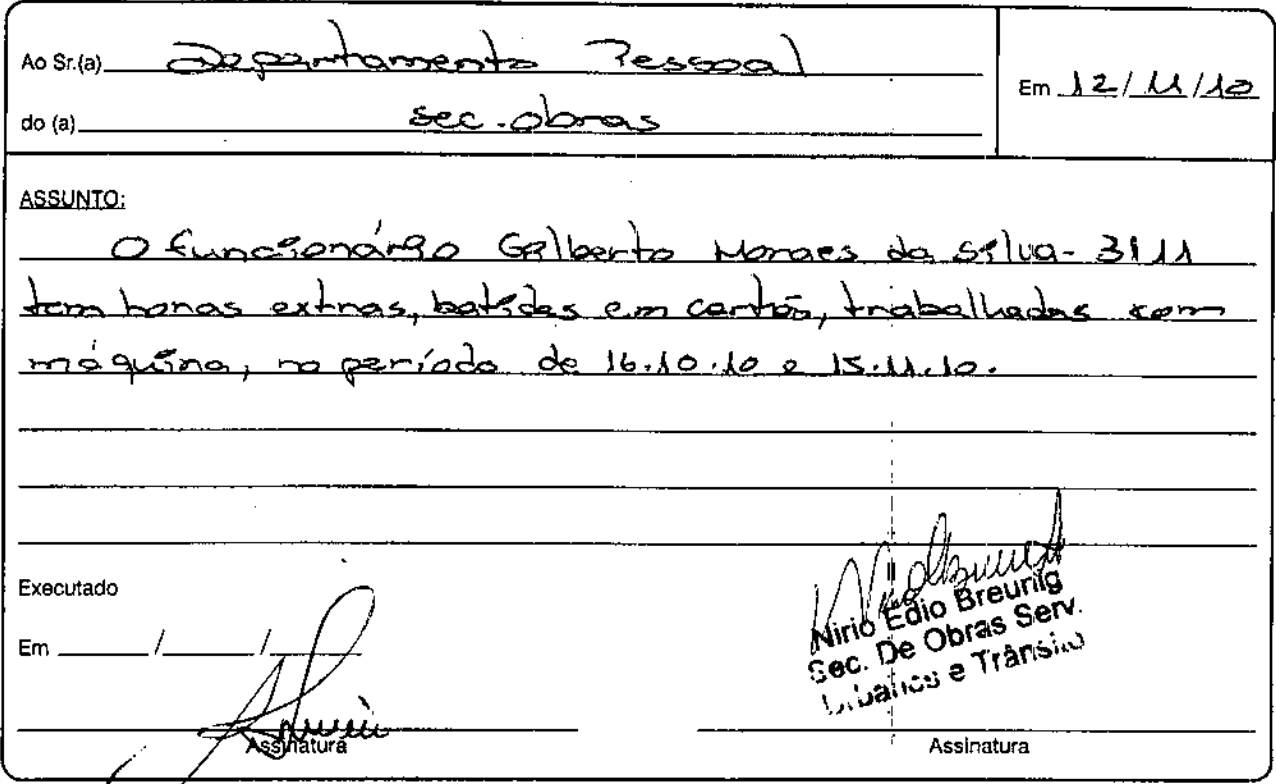 Ao Sr.(a) Departamento Pessoal
do (a) Sec. obras
Em 12/11/10
ASSUNTO:
O funcionário Gilberto Moraes da Silva - 3111
tem horas extras, batidas em cartão, trabalhadas com
máquina, no período de 16.10.10 e 15.11.10.
Executado
Em / /
Assinatura
Nirio Edio Breunig
Sec. De Obras Serv.
Urbanos e Trânsito
Assinatura